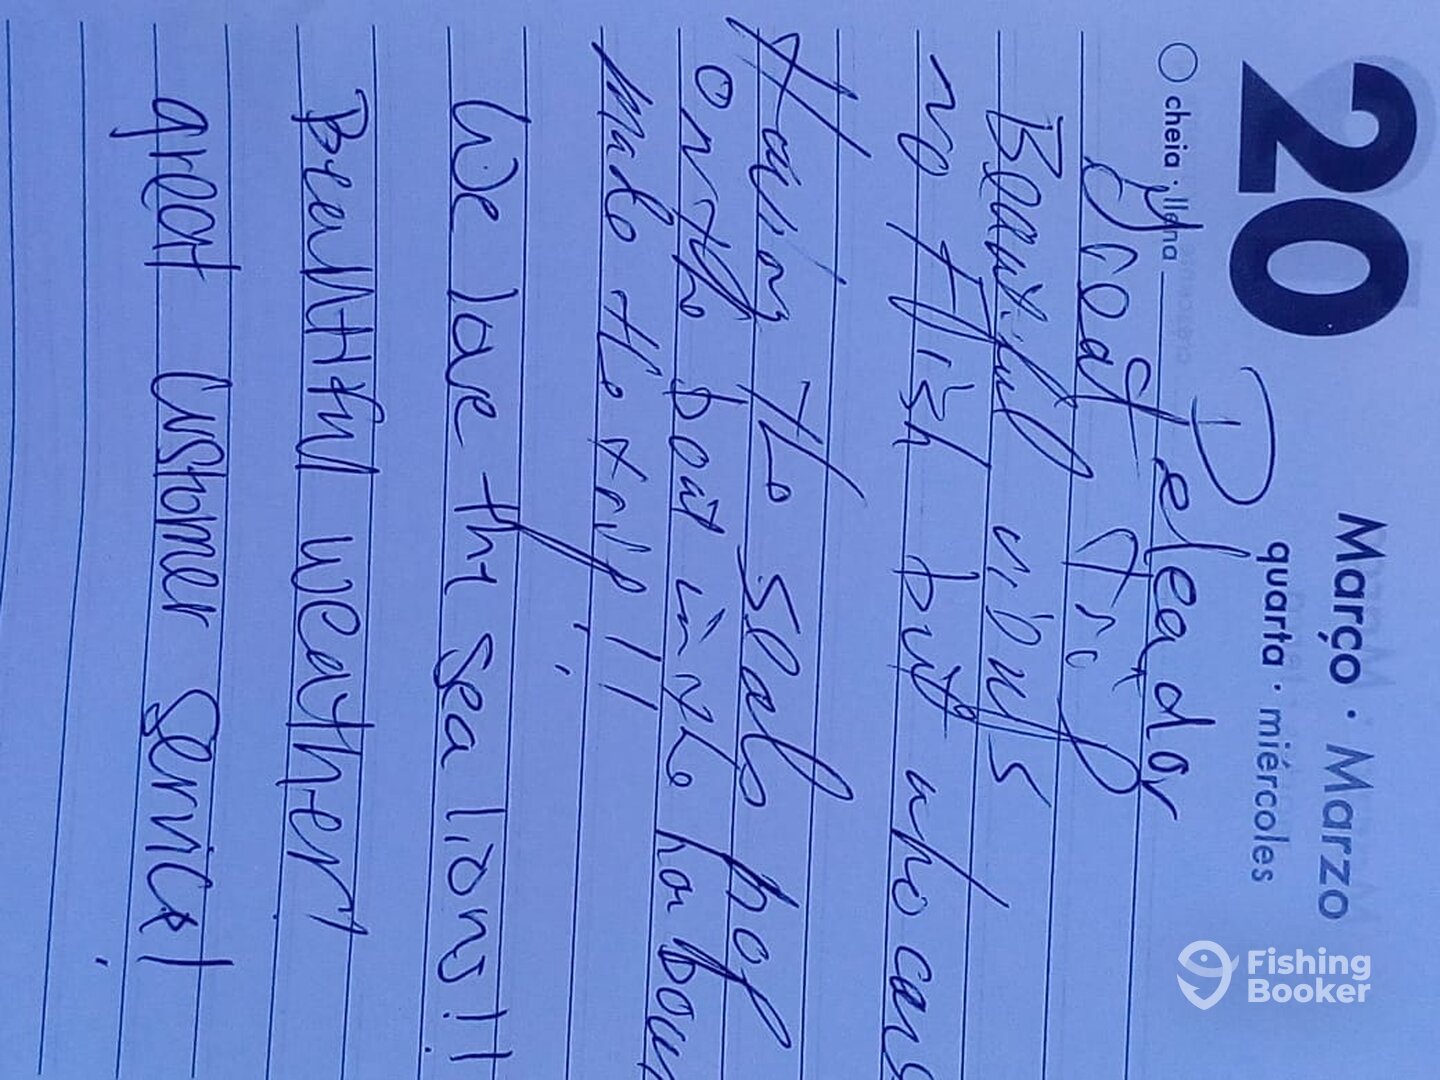 20
Março · Marzo
quarta · miércoles
cheia · llena
Peleador
Great trip
Beautiful
no fish but who cares
Having the seals hop
on the boat in the harbour
made the trip!!
We love the sea lions!!
Beautiful weather!
great customer service!
Fishing
Booker